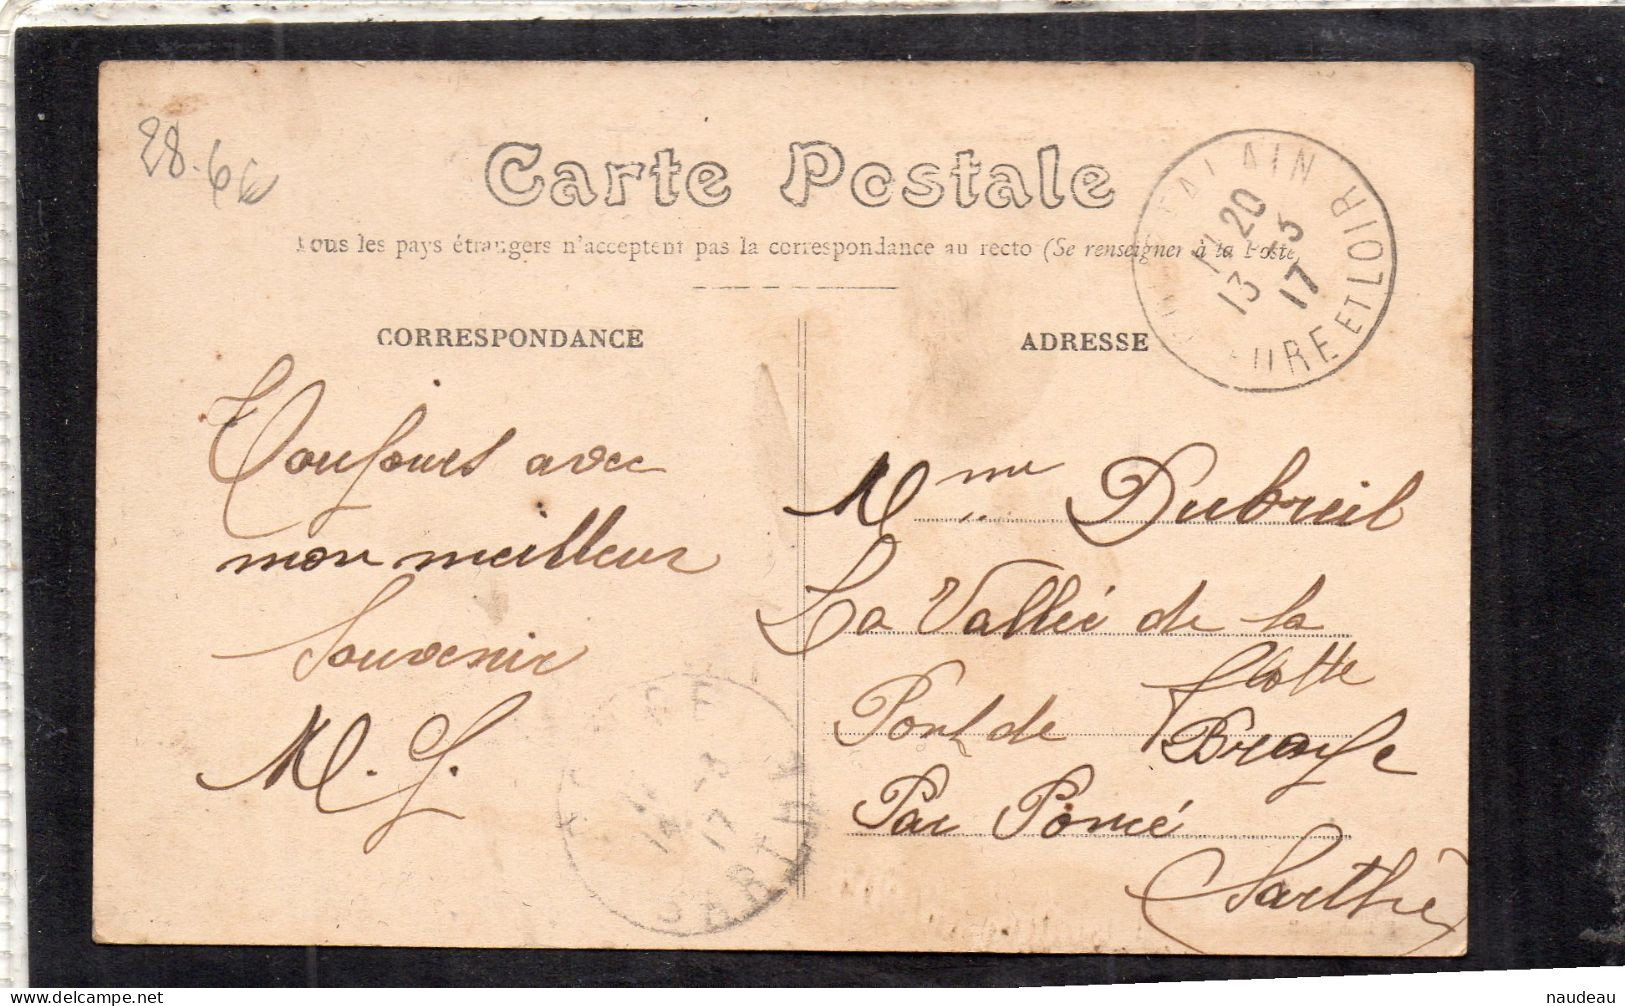 28-6€
Carte Postale
Tous les pays étrangers n'acceptent pas la correspondance au recto (Se renseigner à la Poste)
TALAIN EURE ET LOIR
11 20
13 -3
17
CORRESPONDANCE
ADRESSE
Toujours avec
mon meilleur
Souvenir
M. G.
Mme Dubreuil
La Vallée de la
flotte
Pont de Braye
Par Poncé
Sarthe
14 -3
17
SARTHE
delcampe.net
naudeau